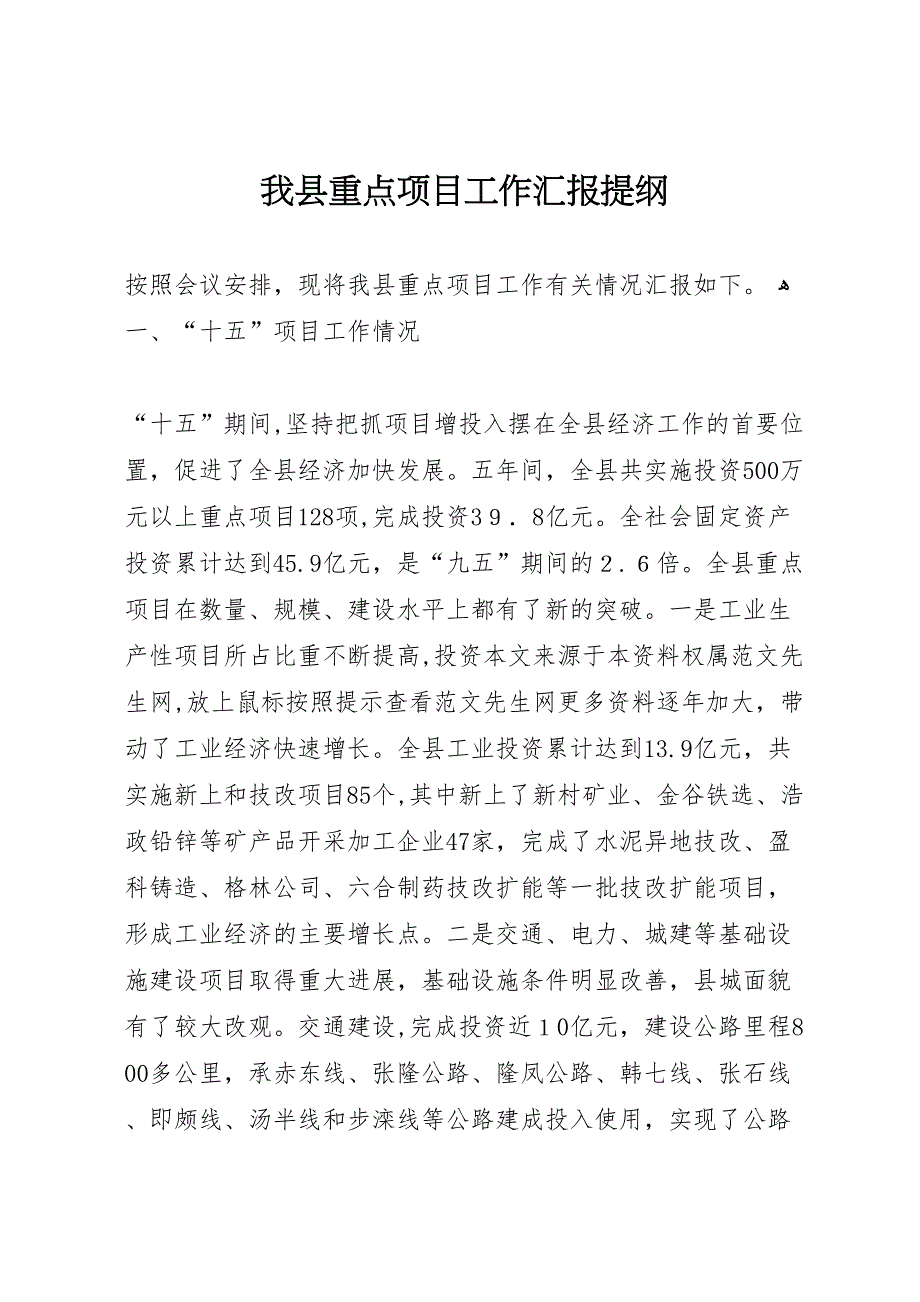 我县重点项目工作汇报提纲
按照会议安排，现将我县重点项目工作有关情况汇报如下。 ﻫ
一、“十五”项目工作情况
“十五”期间,坚持把抓项目增投入摆在全县经济工作的首要位
置，促进了全县经济加快发展。五年间，全县共实施投资500万
元以上重点项目128项,完成投资3９．8亿元。全社会固定资产
投资累计达到45.9亿元，是“九五”期间的２.６倍。全县重点
项目在数量、规模、建设水平上都有了新的突破。一是工业生
产性项目所占比重不断提高,投资本文来源于本资料权属范文先
生网,放上鼠标按照提示查看范文先生网更多资料逐年加大，带
动了工业经济快速增长。全县工业投资累计达到13.9亿元，共
实施新上和技改项目85个,其中新上了新村矿业、金谷铁选、浩
政铅锌等矿产品开采加工企业47家，完成了水泥异地技改、盈
科铸造、格林公司、六合制药技改扩能等一批技改扩能项目，
形成工业经济的主要增长点。二是交通、电力、城建等基础设
施建设项目取得重大进展，基础设施条件明显改善，县城面貌
有了较大改观。交通建设,完成投资近１0亿元，建设公路里程8
00多公里，承赤东线、张隆公路、隆凤公路、韩七线、张石线
、即颇线、汤半线和步滦线等公路建成投入使用，实现了公路